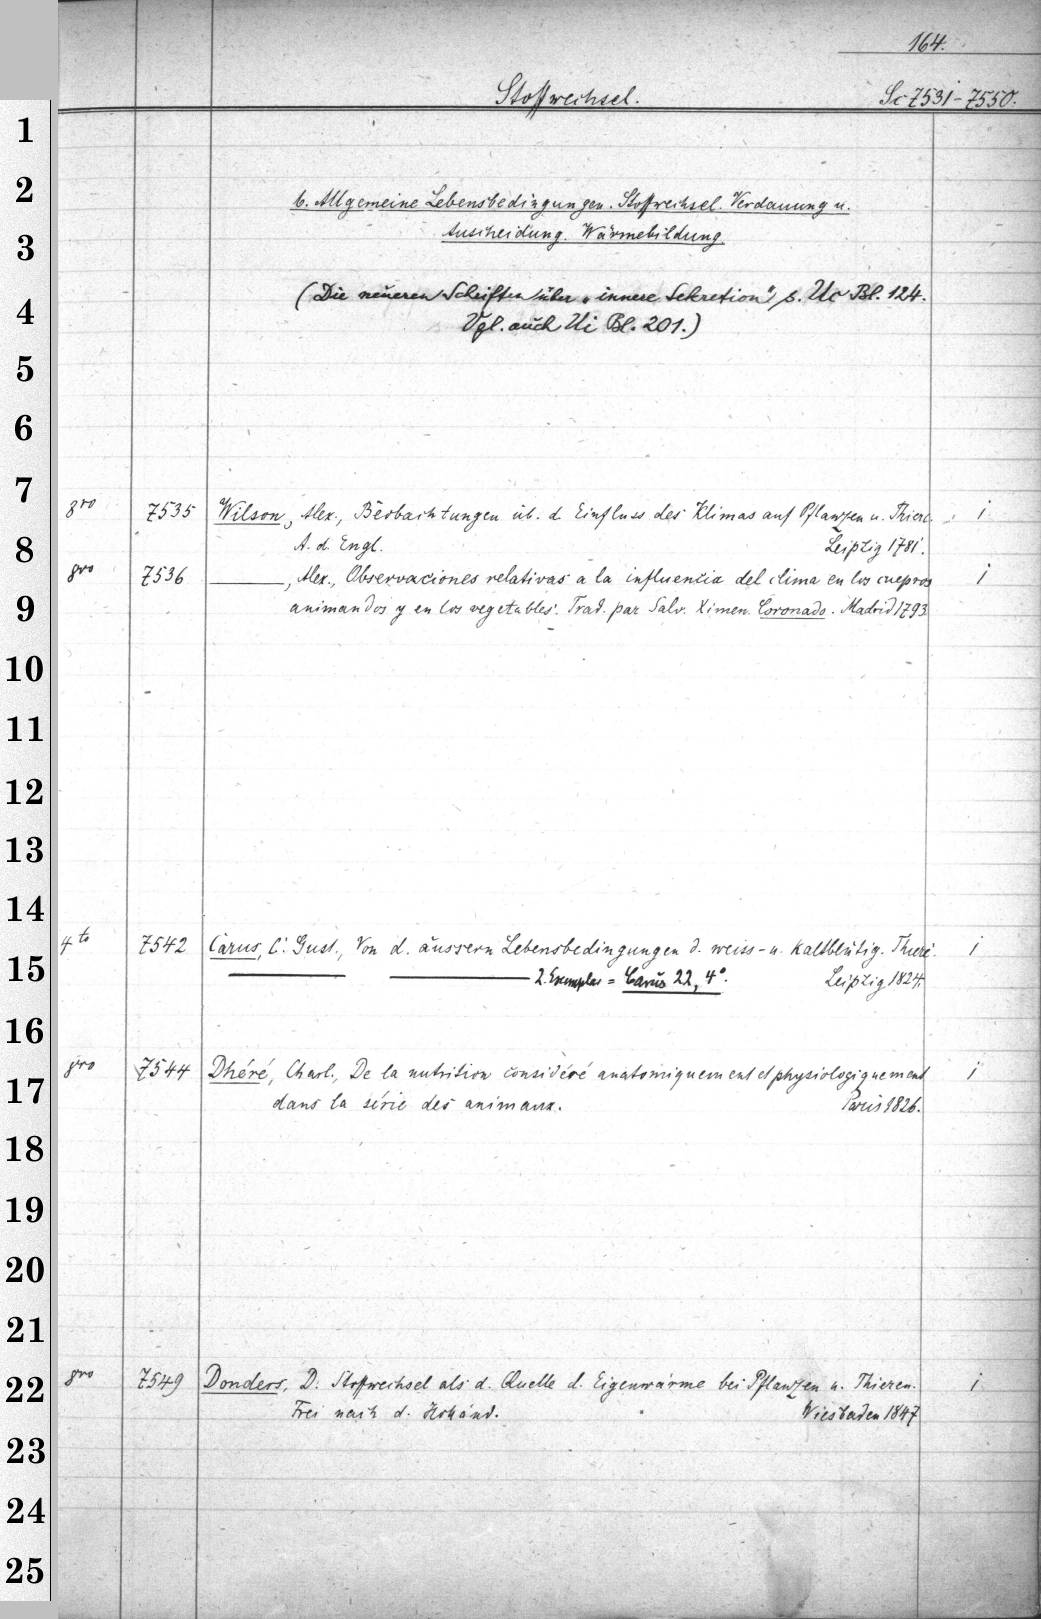 164.
Stoffwechsel. Sc 7531-7550.
1
2
b. Allgemeine Lebensbedingungen. Stoffwechsel. Verdauung u.
3
Auscheidung. Wärmebildung.
4
(Die neueren Schriften über „innere Sekretion" s. Uc Bl. 124.
Vgl. auch Ui Bl. 201.)
5
6
7
8vo 7535 Wilson, Alex., Beobachtungen üb. d. Einfluss des Klimas auf Pflanzen u. Thiere. i
8
A. d. Engl. Leipzig 1781.
8vo 7536 ———, Alex., Observaciones relativas a la influencia del clima en los cuepros i
9
animandos y en los vegetables. Trad. par Salv. Ximen. Coronado. Madrid 1793
10
11
12
13
14
4to 7542 Carus, C. Gust., Von d. äussern Lebensbedingungen d. weiss- u. kaltblütig. Thiere. i
15
——— ——— 2. Exemplar = Carus 22, 4°. Leipzig 1824.
16
8vo 7544 Dhéré, Charl., De la nutrition considéré anatomiquement et physiologiquement i
17
dans la série des animaux. Paris 1826.
18
19
20
21
22
8vo 7549 Donders, D. Stoffwechsel als d. Quelle d. Eigenwärme bei Pflanzen u. Thieren. i
Frei nach d. Holländ. Wiesbaden 1847
23
24
25